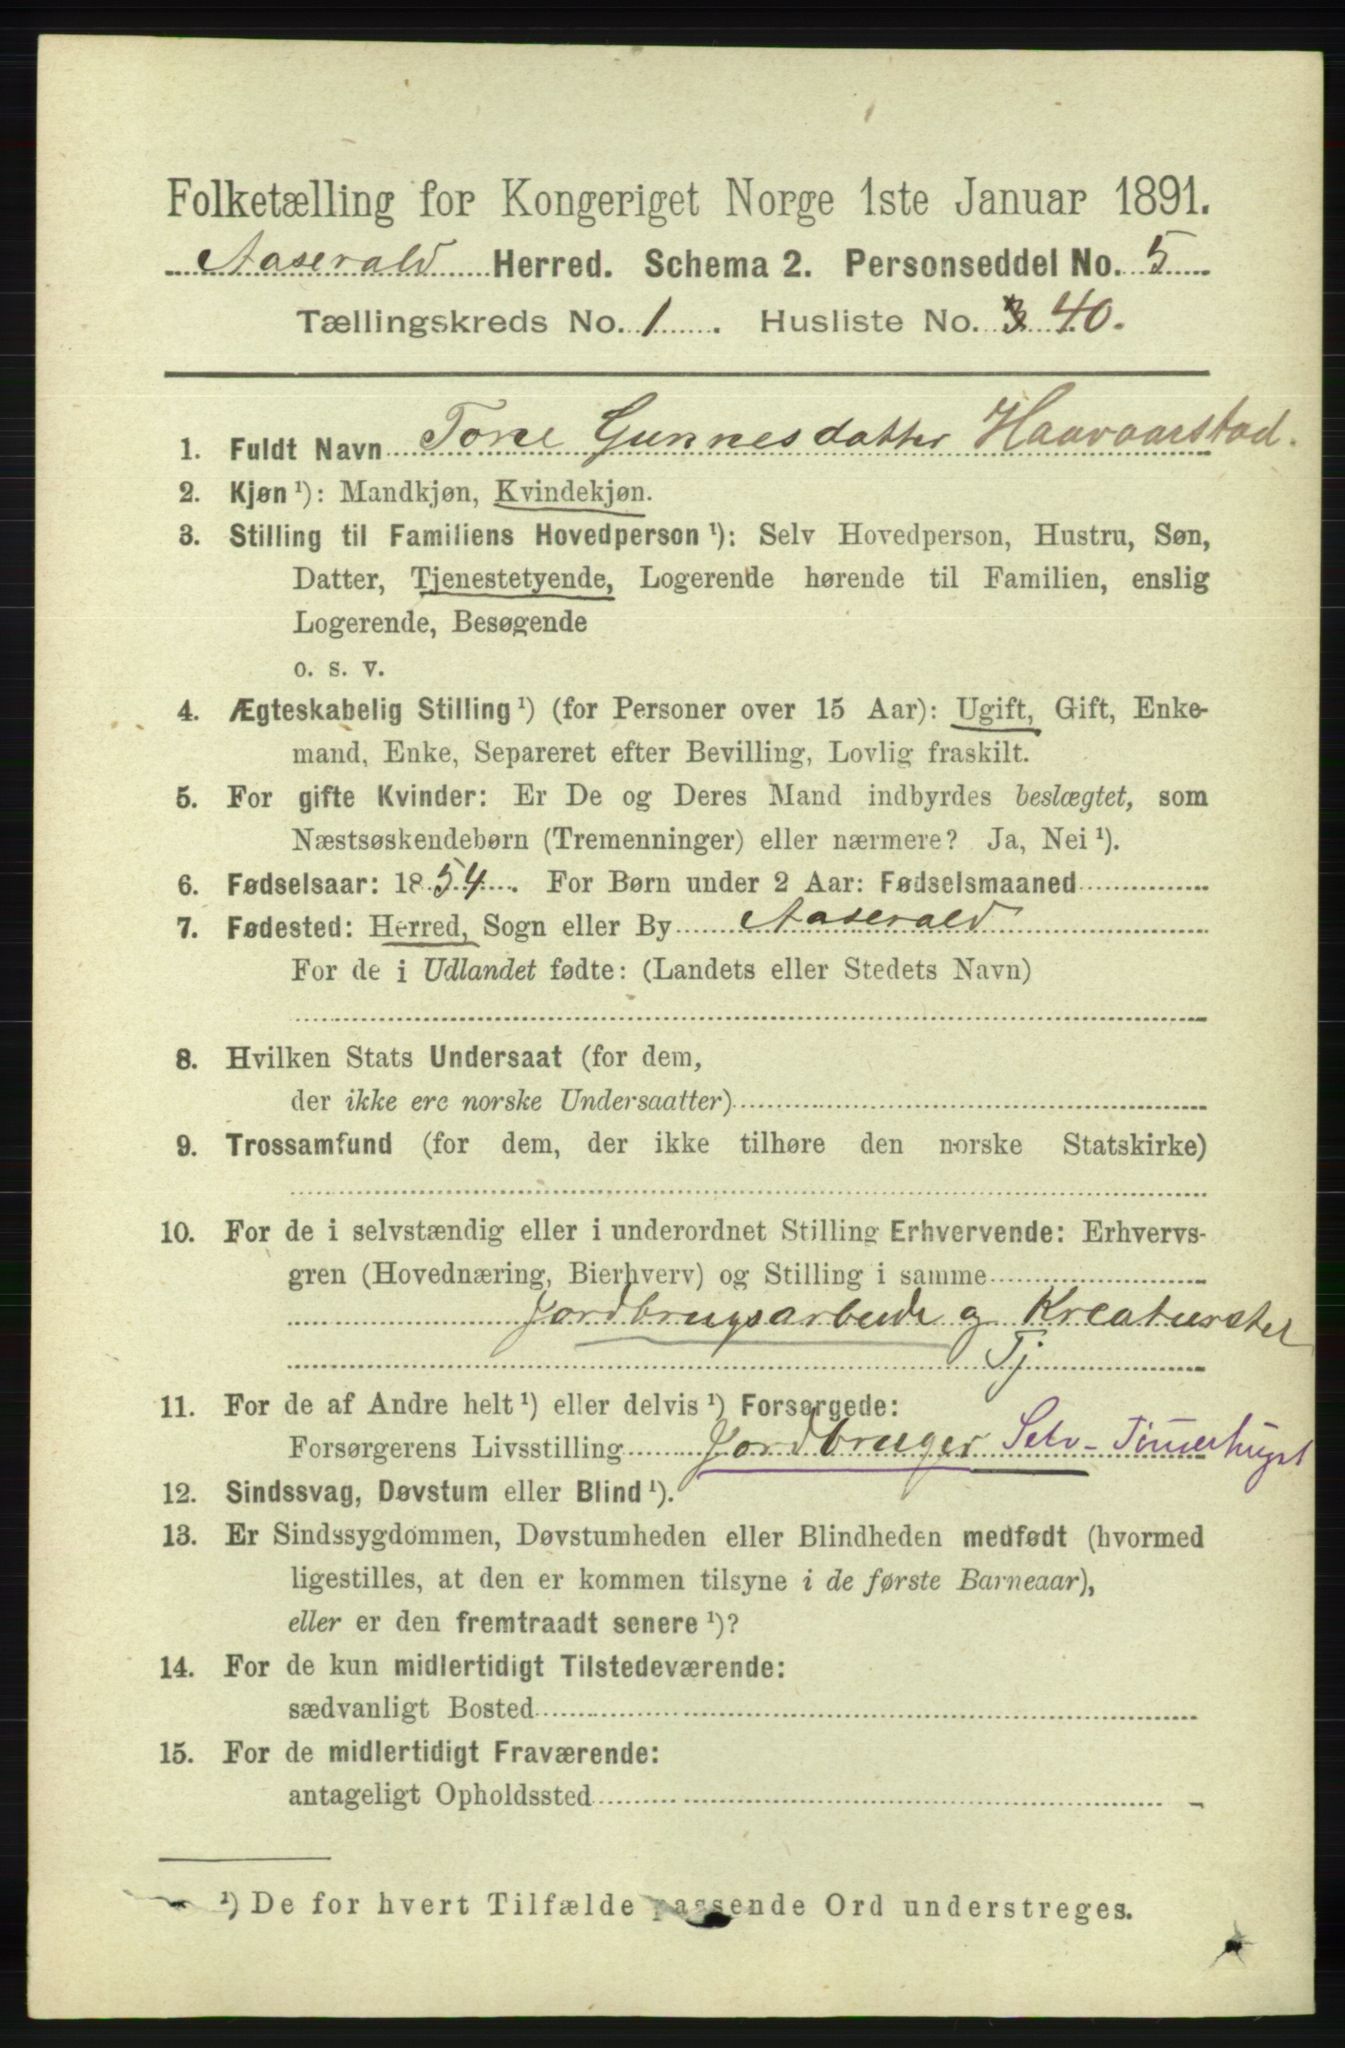 Folketælling for Kongeriget Norge 1ste Januar 1891.
Aaserald Herred. Schema 2. Personseddel No. 5
Tællingskreds No. 1. Husliste No. 40.
1. Fuldt Navn Tone Gunnesdatter Haavaarstad.
2. Kjøn ¹): Mandkjøn, Kvindekjøn.
3. Stilling til Familiens Hovedperson ¹): Selv Hovedperson, Hustru, Søn,
Datter, Tjenestetyende, Logerende hørende til Familien, enslig
Logerende, Besøgende
o. s. v.
4. Ægteskabelig Stilling ¹) (for Personer over 15 Aar): Ugift, Gift, Enke-
mand, Enke, Separeret efter Bevilling, Lovlig fraskilt.
5. For gifte Kvinder: Er De og Deres Mand indbyrdes beslægtet, som
Næstsøskendebørn (Tremenninger) eller nærmere? Ja, Nei ¹).
6. Fødselsaar: 1854. For Børn under 2 Aar: Fødselsmaaned
7. Fødested: Herred, Sogn eller By Aaserald
For de i Udlandet fødte: (Landets eller Stedets Navn)
8. Hvilken Stats Undersaat (for dem,
der ikke ere norske Undersaatter)
9. Trossamfund (for dem, der ikke tilhøre den norske Statskirke)
10. For de i selvstændig eller i underordnet Stilling Erhvervende: Erhvervs-
gren (Hovednæring, Bierhverv) og Stilling i samme
Jordbrugsarbeide og Kreaturstel
Tj
11. For de af Andre helt ¹) eller delvis ¹) Forsørgede:
Forsørgerens Livsstilling Jordbruger Selv-
12. Sindssvag, Døvstum eller Blind ¹).
13. Er Sindssygdommen, Døvstumheden eller Blindheden medfødt (hvormed
ligestilles, at den er kommen tilsyne i de første Barneaar),
eller er den fremtraadt senere ¹)?
14. For de kun midlertidigt Tilstedeværende:
sædvanligt Bosted
15. For de midlertidigt Fraværende:
antageligt Opholdssted
¹) De for hvert Tilfælde passende Ord understreges.